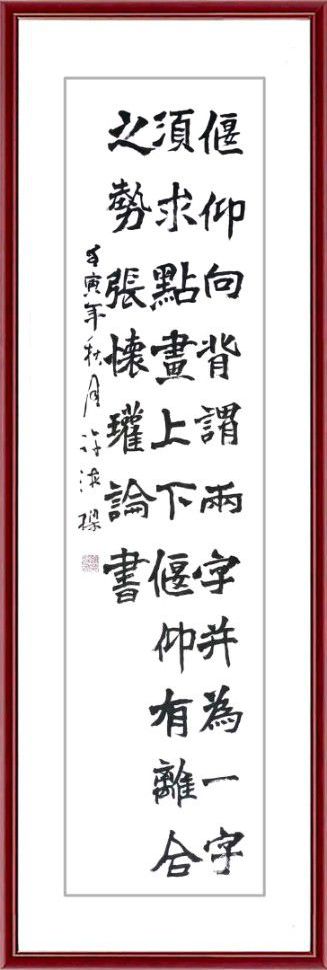 偃仰向背謂兩字并為一字
須求點畫上下偃仰有離合
之勢張懷瓘論書
壬寅年秋月許海樑